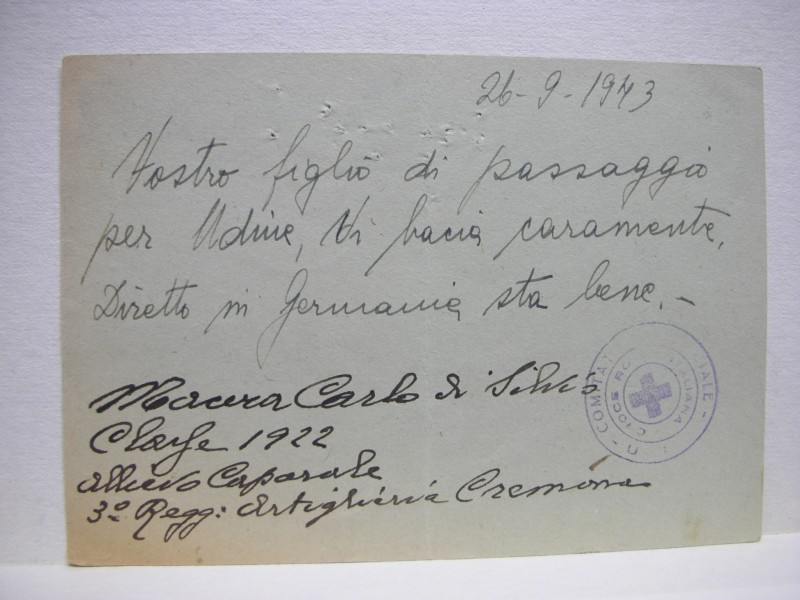 26-9-1943
Vostro figlio di passaggio
per Udine, Vi bacia caramente,
Diretto in Germania sta bene.-
Macera Carlo di Silvio
Classe 1922
Allievo Caporale
3° Regg: Artiglieria Cremona
CROCE ITALIANA